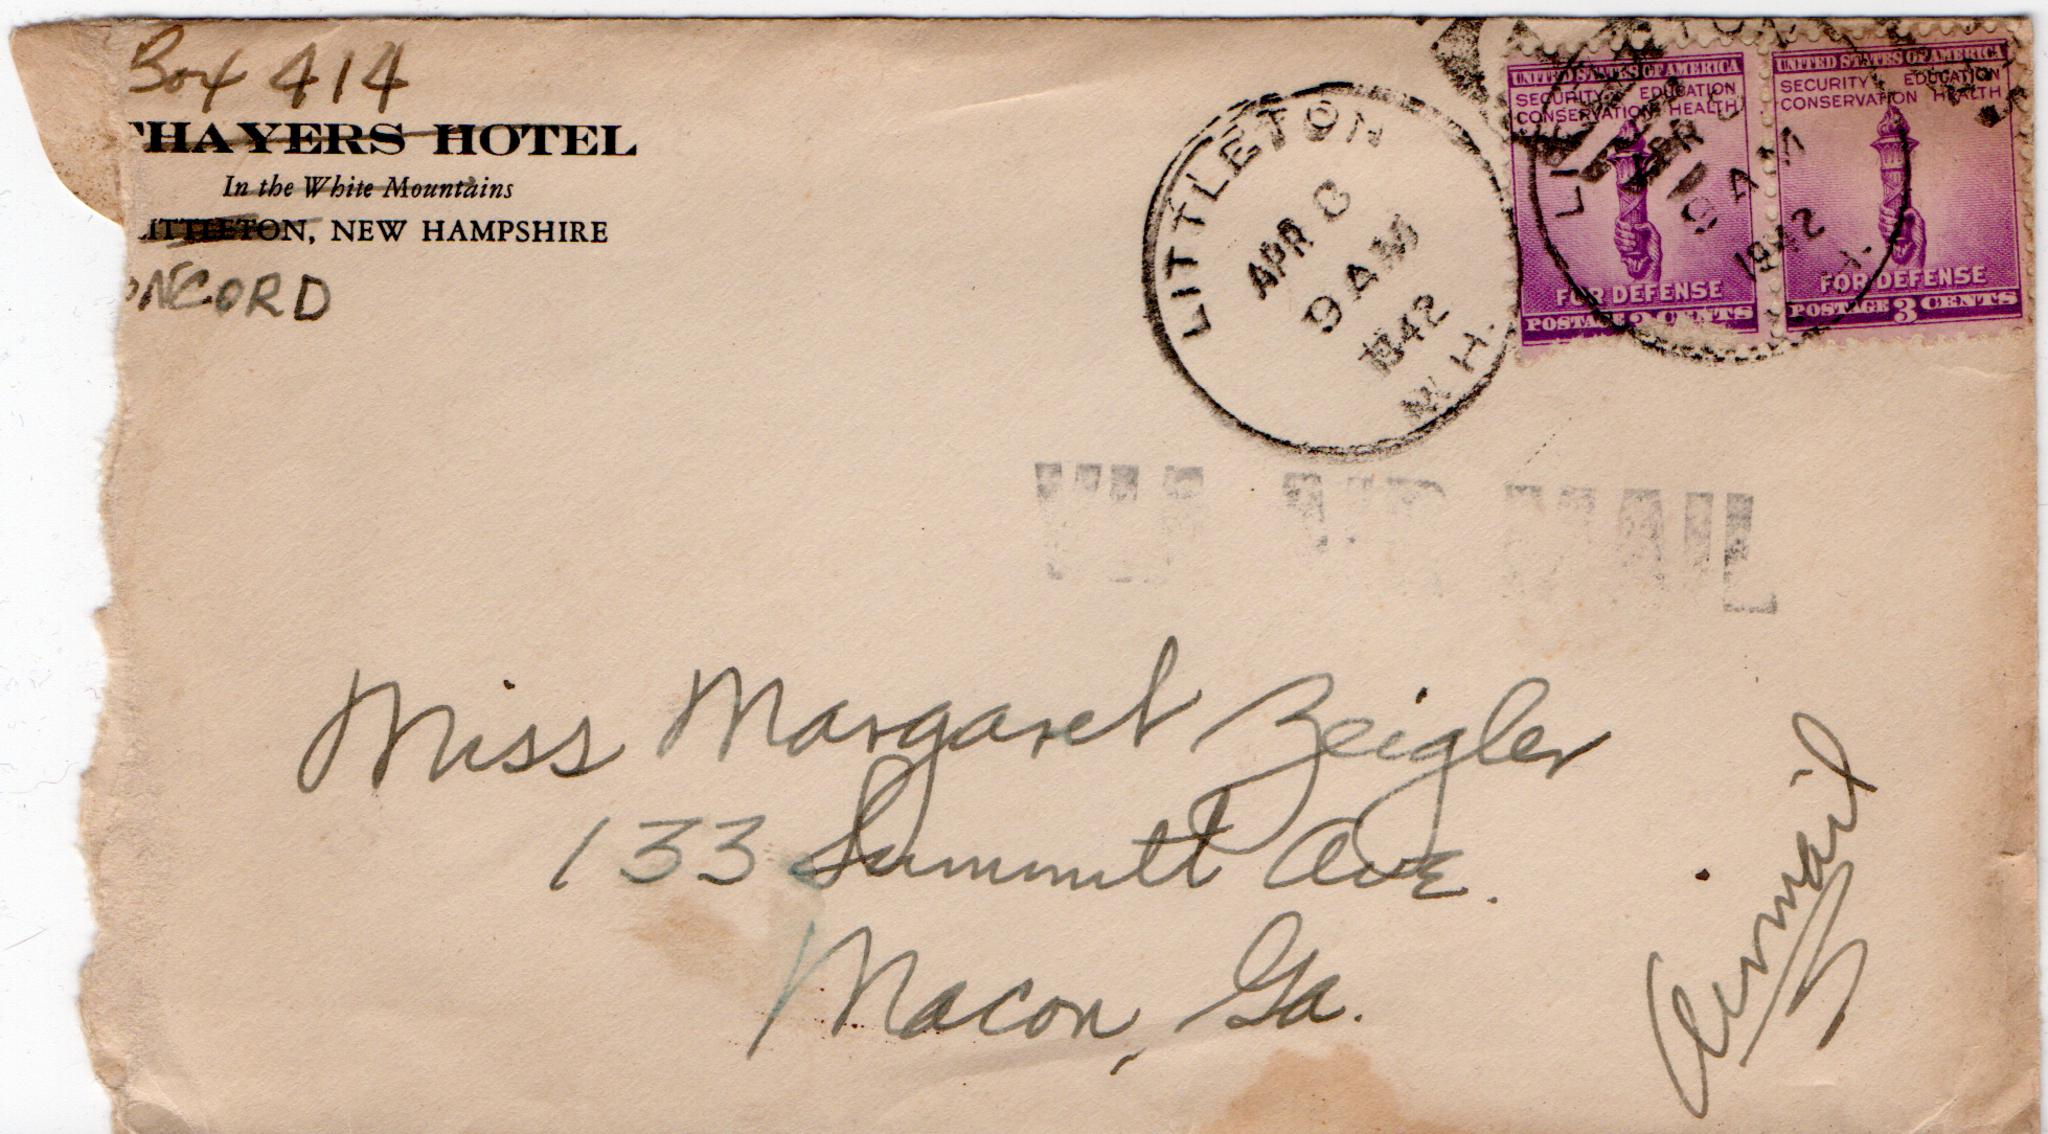 Box 414
THAYERS HOTEL
In the White Mountains
LITTLETON, NEW HAMPSHIRE
ONCORD
LITTLETON
APR
9 AM
1942
N.H.
UNITED STATES OF AMERICA
SECURITY EDUCATION
CONSERVATION HEALTH
FOR DEFENSE
POSTAGE 3 CENTS
UNITED STATES OF AMERICA
SECURITY EDUCATION
CONSERVATION HEALTH
FOR DEFENSE
POSTAGE 3 CENTS
APR
9 AM
1942
VIA AIR MAIL
Miss Margaret Zeigler
133 Summitt Ave.
Macon, Ga.
Airmail